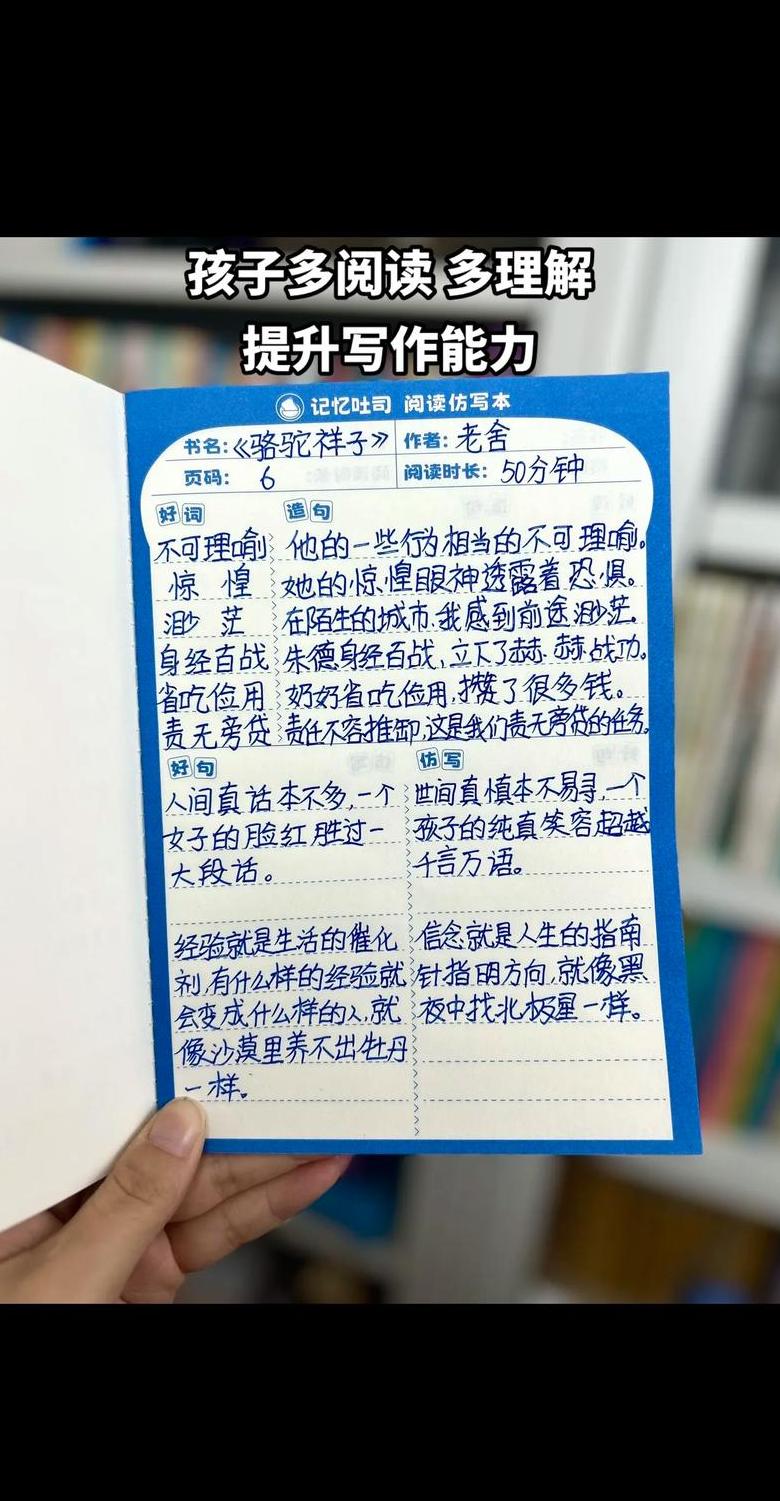 孩子多阅读 多理解
提升写作能力
记忆吐司 阅读仿写本
书名:《骆驼祥子》 作者: 老舍
页码: 6 阅读时长: 50分钟
好词 造句
不可理喻 他的一些行为相当的不可理喻。
惊惶 她的惊惶眼神透露着恐惧。
渺茫 在陌生的城市,我感到前途渺茫。
身经百战 朱德身经百战,立下了赫赫战功。
省吃俭用 奶奶省吃俭用,攒了很多钱。
责无旁贷 责任不容推卸,这是我们责无旁贷的任务。
好句
人间真话本不多,一个
女子的脸红胜过一
大段话。
经验就是生活的催化
剂,有什么样的经验就
会变成什么样的人,就
像沙漠里养不出牡丹
一样。
仿写
世间真慎本不易寻,一个
孩子的纯真笑容超越
千言万语。
信念就是人生的指南
针指明方向,就像黑
夜中找北极星一样。